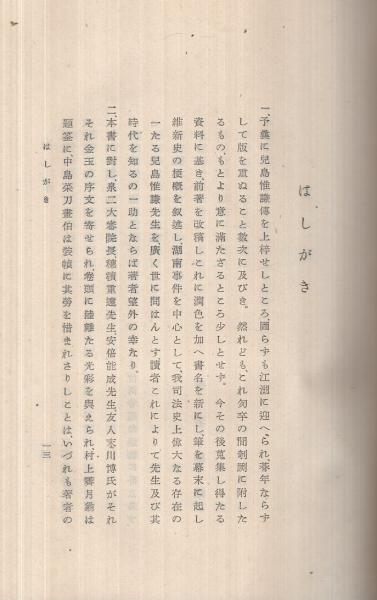 はしがき
一、予曩に兒島惟謙傳を上梓せしところ、圖らずも江湖に迎へられ、朞年ならず
して版を重ねること數次に及びき。然れどもこれ匆卒の間剞劂に附した
るもの、もとより意に滿たざるところ少しとせず。今その後蒐集し得たる
資料に基き、前著を改稿しこれに潤色を加へ書名を新にし、筆を幕末に起し
維新史の梗概を叙述し、湖南事件を中心として、我司法史上偉大なる存在の
一たる兒島惟謙先生を廣く世に問はんとす、讀者これによりて先生及び其
時代を知るの一助とならば著者望外の幸なり。
二、本書に對し、泉二大審院長穗積重遠先生、安倍能成先生、友人末川博氏がそれ
それ金玉の序文を寄せられ、卷頭に陸離たる光彩を與えられ村上霽月翁は
題簽に、中島菜刀畫伯は裝幀に其勞を惜まれさりしことは、いづれも著者の
はしがき
一三